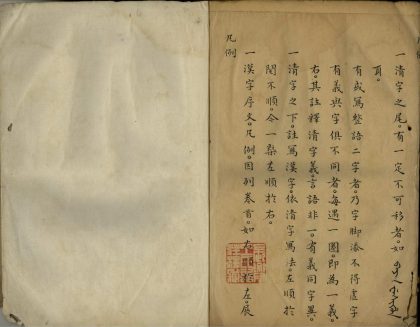 凡例
一漢字序文。凡例。因列卷首。如右順於左。展
閱不順。今一槩左順於右。
一清字之下。註寫漢字。依清字寫法。左順於
右。其註釋清字義。言語非一。有義同字異。
有義與字俱不同者。每遇一圈。即為一義。
有或寫整語二字者。乃字脚添不得虛字
一清字之尾。有一定不可移者。如